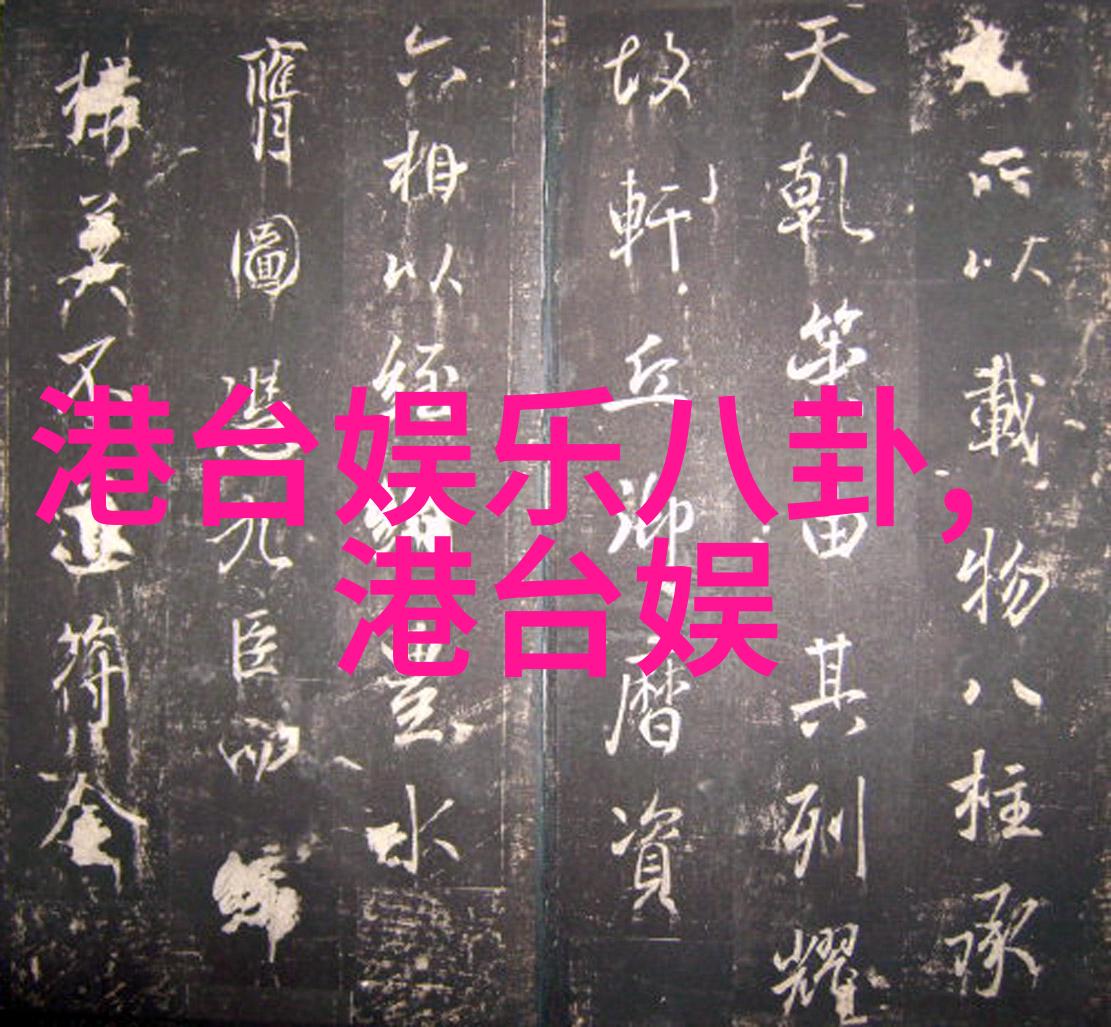 所以載物八柱承
天乾由其列耀
故軒丘御曆資
六相以經綸豊水
膺圖馮九臣而
構美不符
港台娱乐八卦，
港台娱